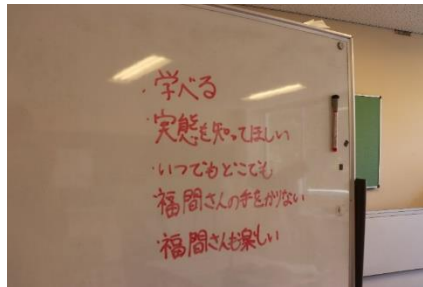 ・学べる
実態も知ってほしい
・いつでもどこでも
福間さんの手をかりない
・福間さんも楽しい